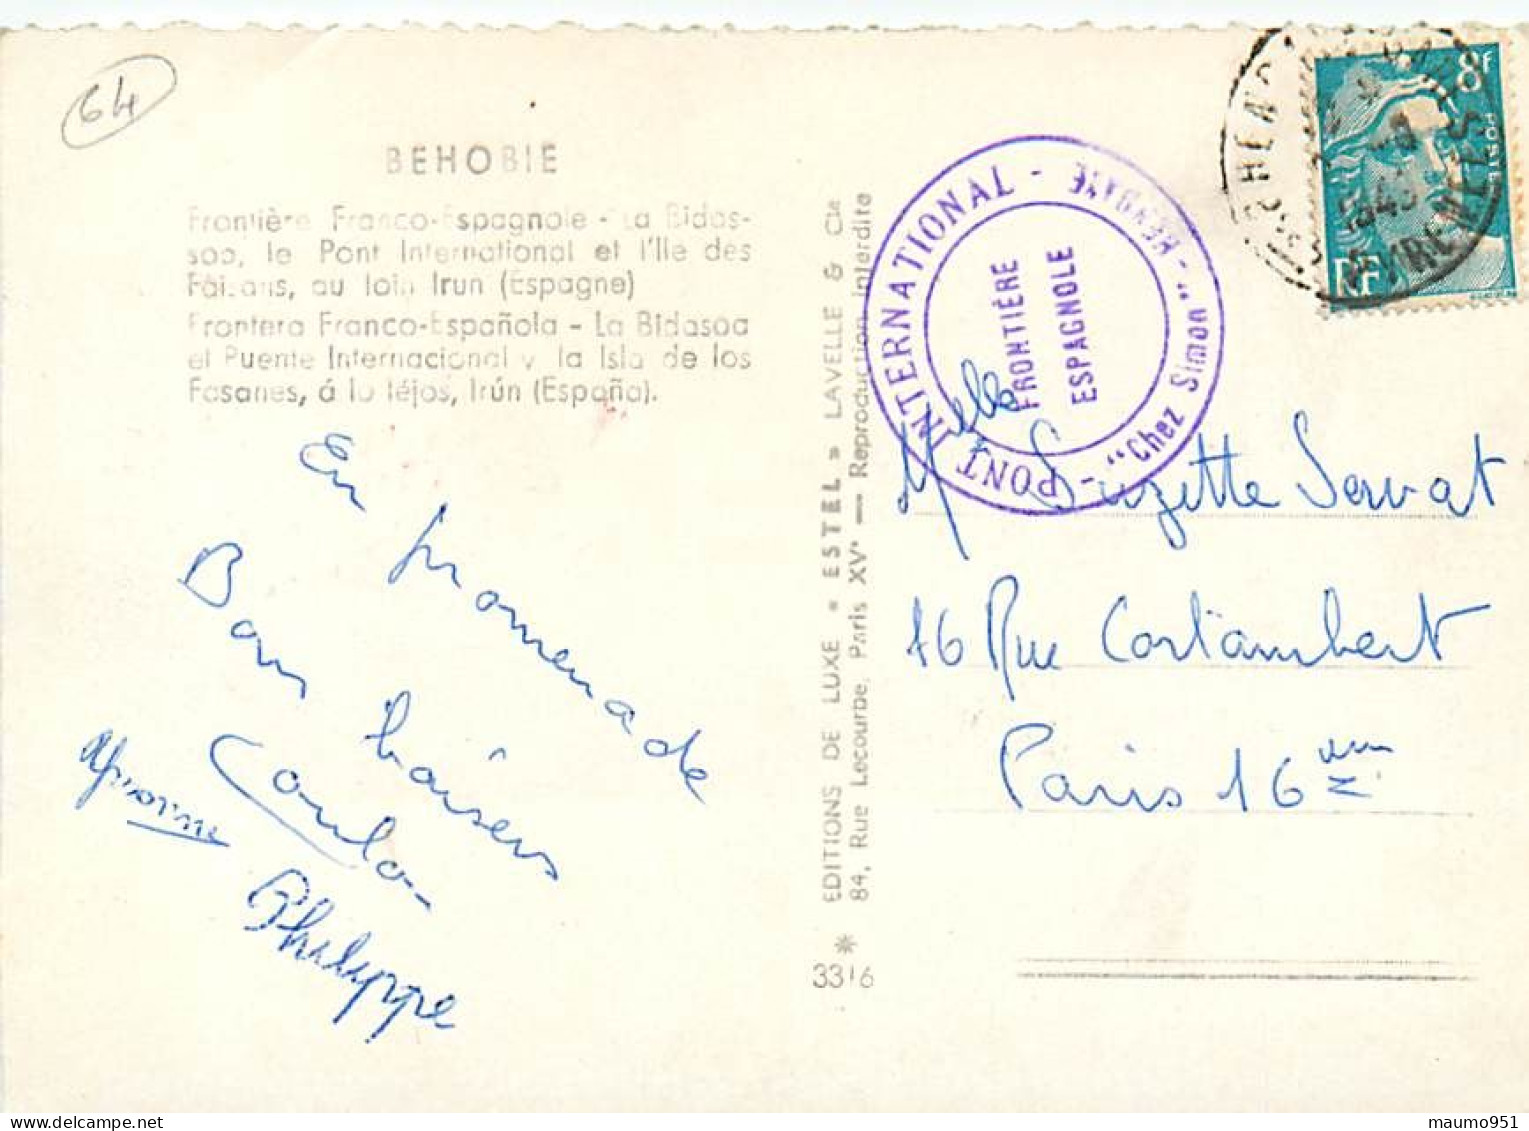 64
BEHOBIE
Frontière Franco-Espagnole - La Bidas-
soa, le Pont International et l'Ile des
Faisans, au loin Irun (Espagne)
Frontera Franco-Española - La Bidasoa
el Puente Internacional y la Isla de los
Fasanes, á lo léjos, Irún (España).
En promenade
Bons baisers
Coulo-
Yvonne
Philippe
EDITIONS DE LUXE « ESTEL » LAVELLE & Cie
84, Rue Lecourbe, Paris XVe — Reproduction Interdite
* 3316
PONT INTERNATIONAL - HENDAYE - "Chez Simon" -
FRONTIÈRE
ESPAGNOLE
8F
POSTES
RF
Melle Suzette Servat
16 Rue Cortambert
Paris 16eme
maumo951